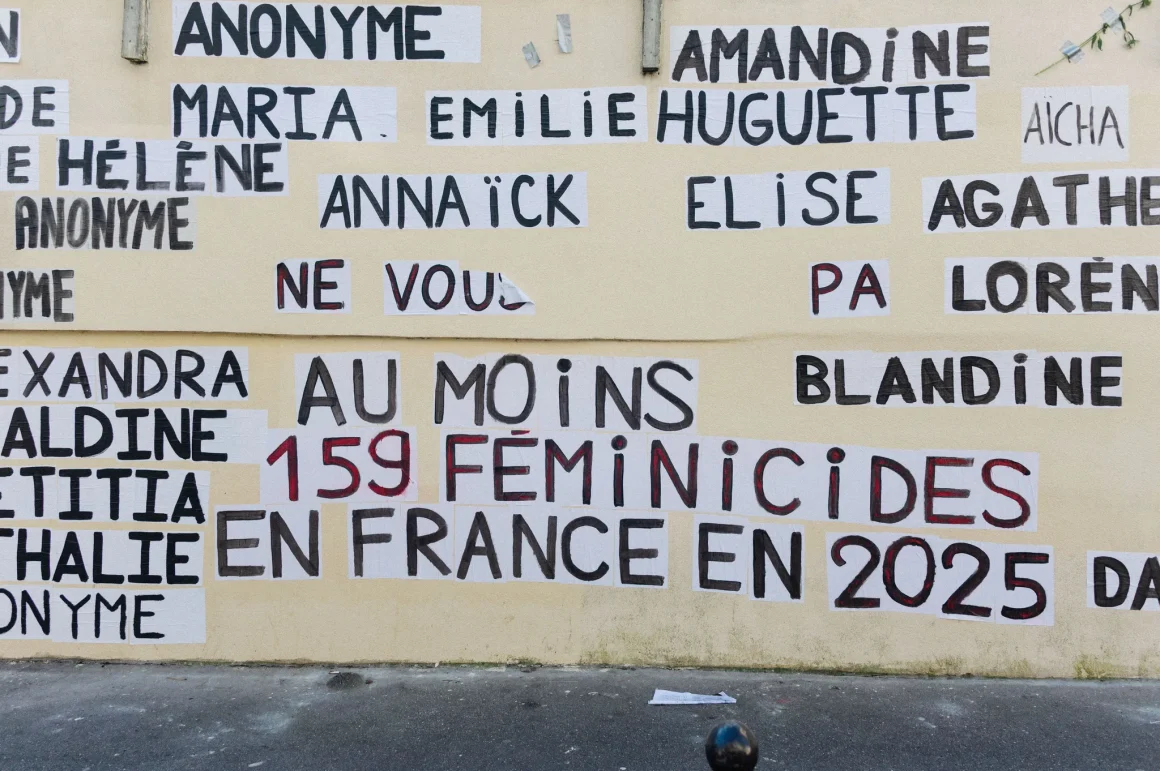 N ANONYME AMANDiNE
DE MARIA. EMiLiE HUGUETTE AÏCHA
E HÉLÈNE ANNAÏCK ELiSE AGATHE
ANONYME
NYME NE VOUS PA LORÈN
EXANDRA AU MOiNS BLANDiNE
ALDINE 159 FÉMiNiCiDES
ETITIA
THALIE EN FRANCE EN 2025 DA
ONYME